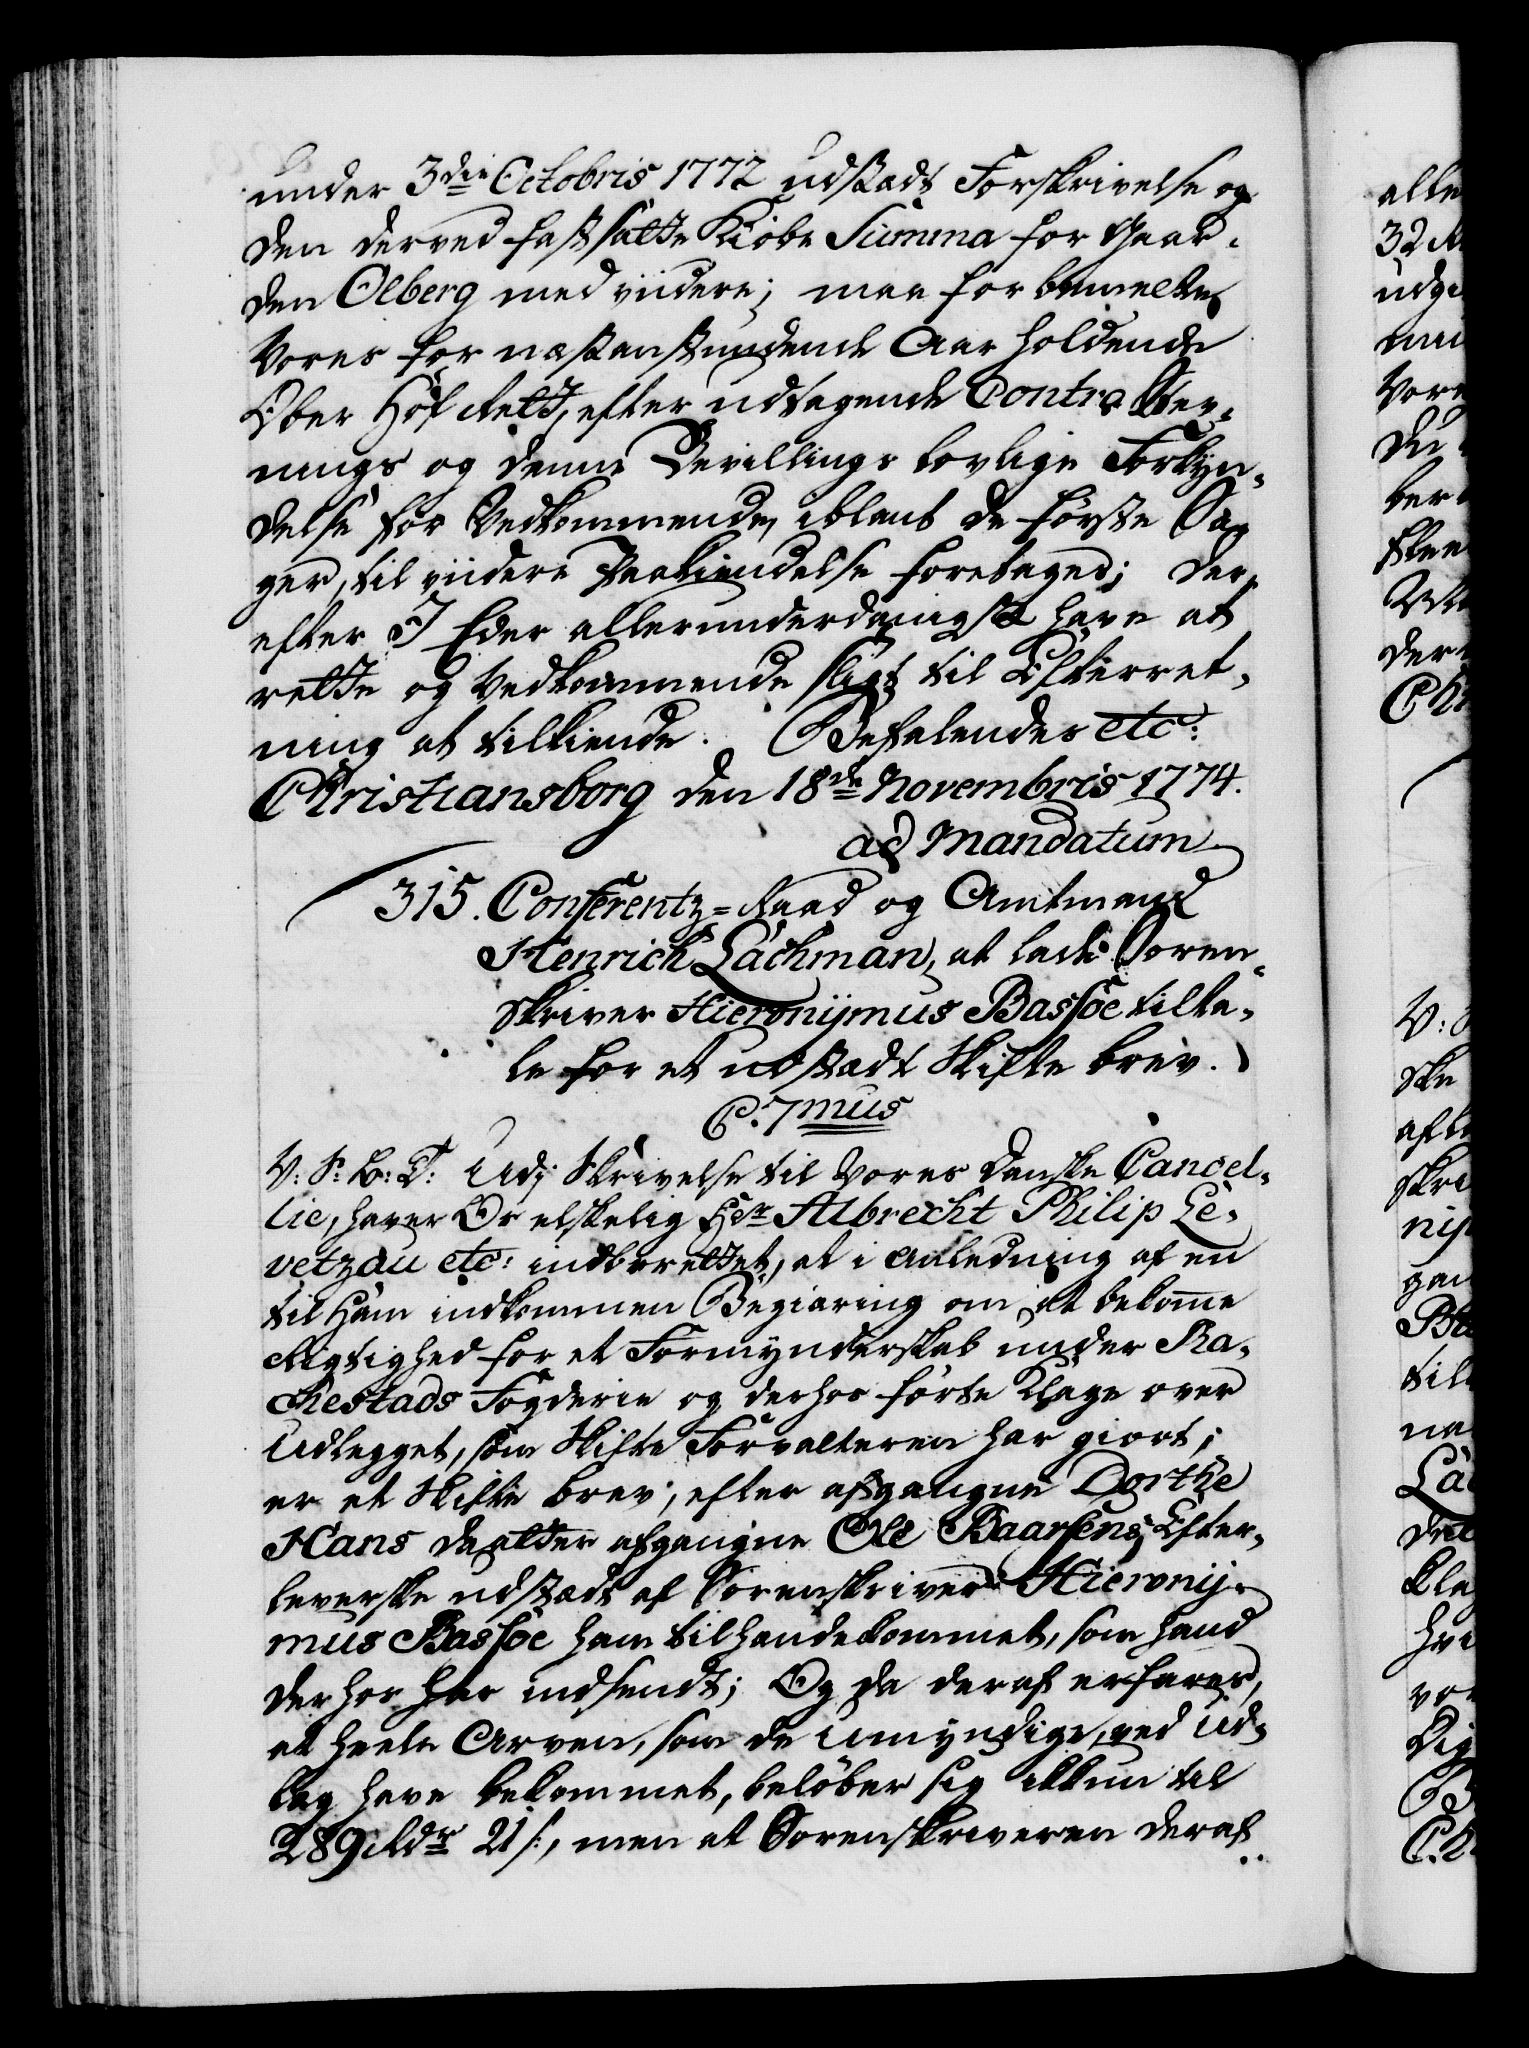 under 3die Octobris 1772 udstædt Forskrivelse og
den derved fastsatte Kiöbe Summa for Gaar-
den Olberg med viidere; maa for bemeldte
Vores for næstanstundende Aar holdende
Ober Hof Rett, efter udtagende Contra Stev-
nings og denne Bevillings lovlige Forkyn-
delse for Vedkommende, iblant de förste Sa-
ger, til viidere Paakiendelse foretages; Der-
efter I Eder allerunderdanigst have at
rette og Vedkommende sligt til Efterret-
ning at tilkiende. Befalendes etc:
Christiansborg den 18de Novembris 1774.
ad Mandatum
315. Conferentz-Raad og Amtmand
Henrich Lachman, at lade Soren-
skriver Hieronijmus Bassöe tilta-
le for et udstædt Skifte brev.
C. 7mus
V: S: G: T: Udi Skrivelse til Vores Danske Cancel-
lie, haver Os elskelig Hr Albrecht Philip Le-
vetzau etc: indberettet, at i Anledning af en
til Ham indkommen Begiæring om at bekomme
Rigtighed for et Formynderskab under Ra-
chestads Fogderie og derhos förte Klage over
Udlegget, som Skifte Forvalteren har giort;
er et Skifte brev, efter afgangne Dorthe
Hans daatter afgangne Ole Baarsens Efter-
leverske udstædt af Sorenskriver Hieronij-
mus Bassöe ham tilhændekommet, som hand
derhos har indsendt; Og da deraf erfares,
at heele Arven, som de Umyndige, ved Ud-
læg have bekommet, belöber sig ikkun til
289 Rdr 21 s:, men at Sorenskriveren deraf